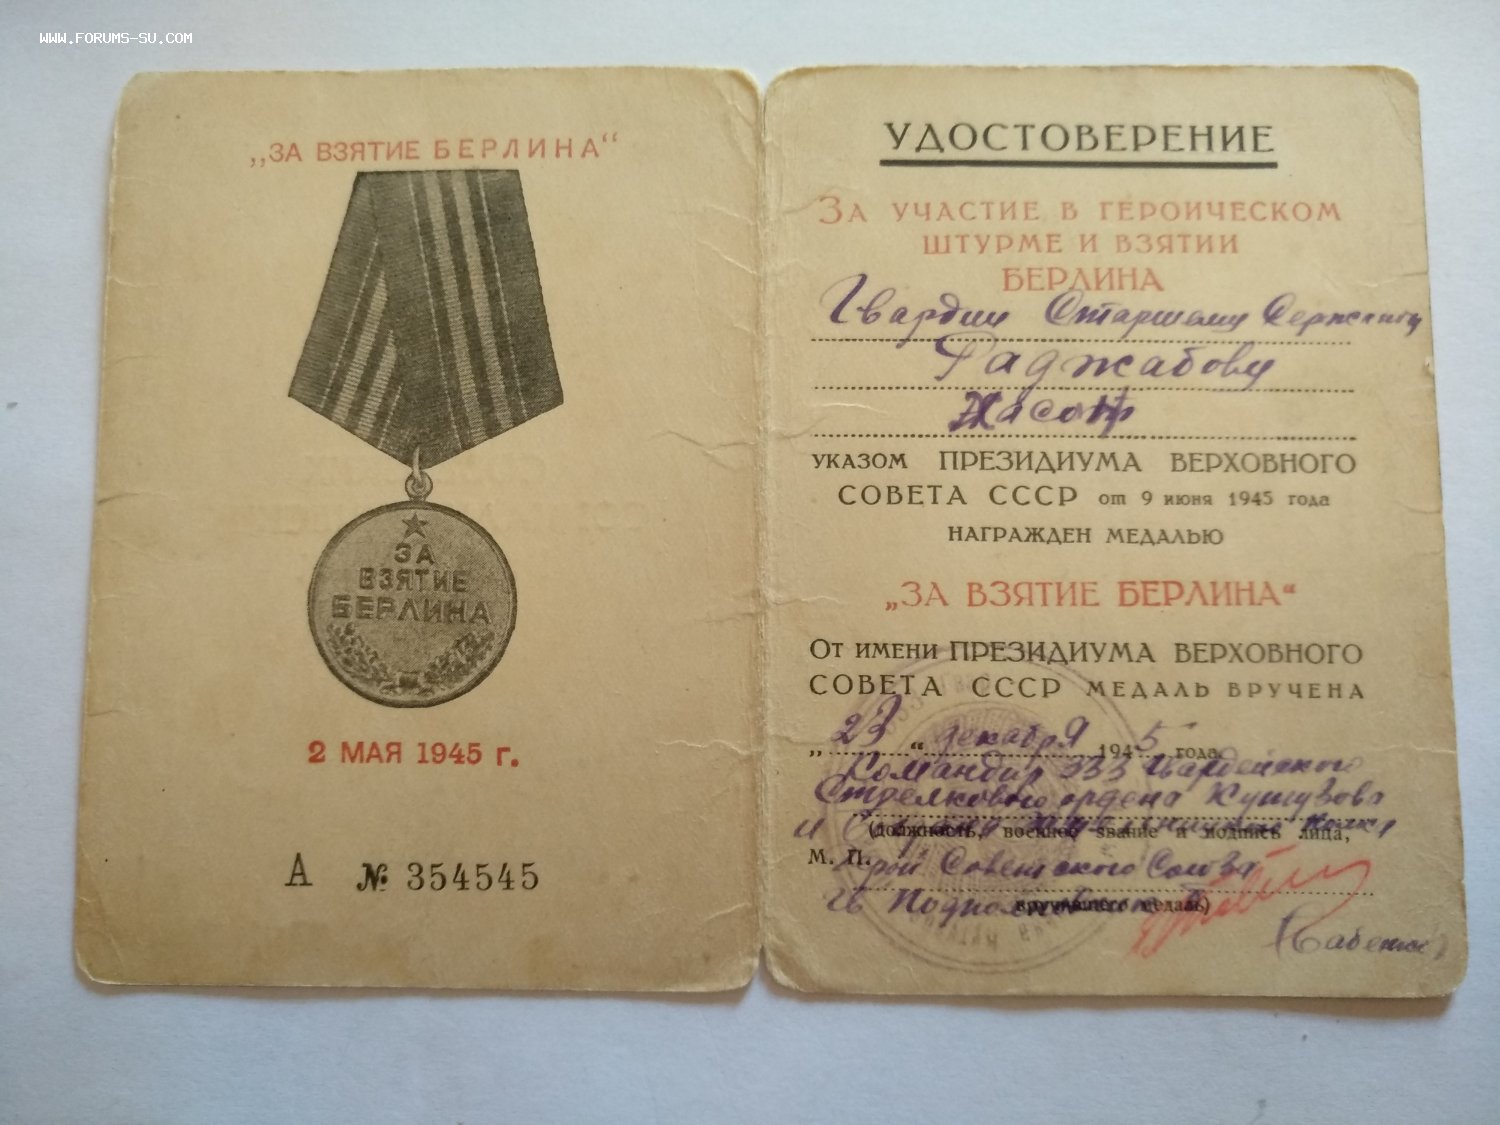 WWW.FORUMS-SU.COM
„ЗА ВЗЯТИЕ БЕРЛИНА“
ЗА
ВЗЯТИЕ
БЕРЛИНА
2 МАЯ 1945 г.
А № 354545
УДОСТОВЕРЕНИЕ
ЗА УЧАСТИЕ В ГЕРОИЧЕСКОМ
ШТУРМЕ И ВЗЯТИИ
БЕРЛИНА
Гвардии Старшему Сержанту
Раджабову
УКАЗОМ ПРЕЗИДИУМА ВЕРХОВНОГО
СОВЕТА СССР от 9 июня 1945 года
НАГРАЖДЕН МЕДАЛЬЮ
„ЗА ВЗЯТИЕ БЕРЛИНА“
ОТ ИМЕНИ ПРЕЗИДИУМА ВЕРХОВНОГО
СОВЕТА СССР МЕДАЛЬ ВРУЧЕНА
„23“ декабря 1945 года
Командир 333 Гвардейского
Стрелкового ордена Кутузова
и полка
(должность, военное звание и подпись лица,
М. П. Герой Советского Союза
Гв Подполковник
вручившего медаль)